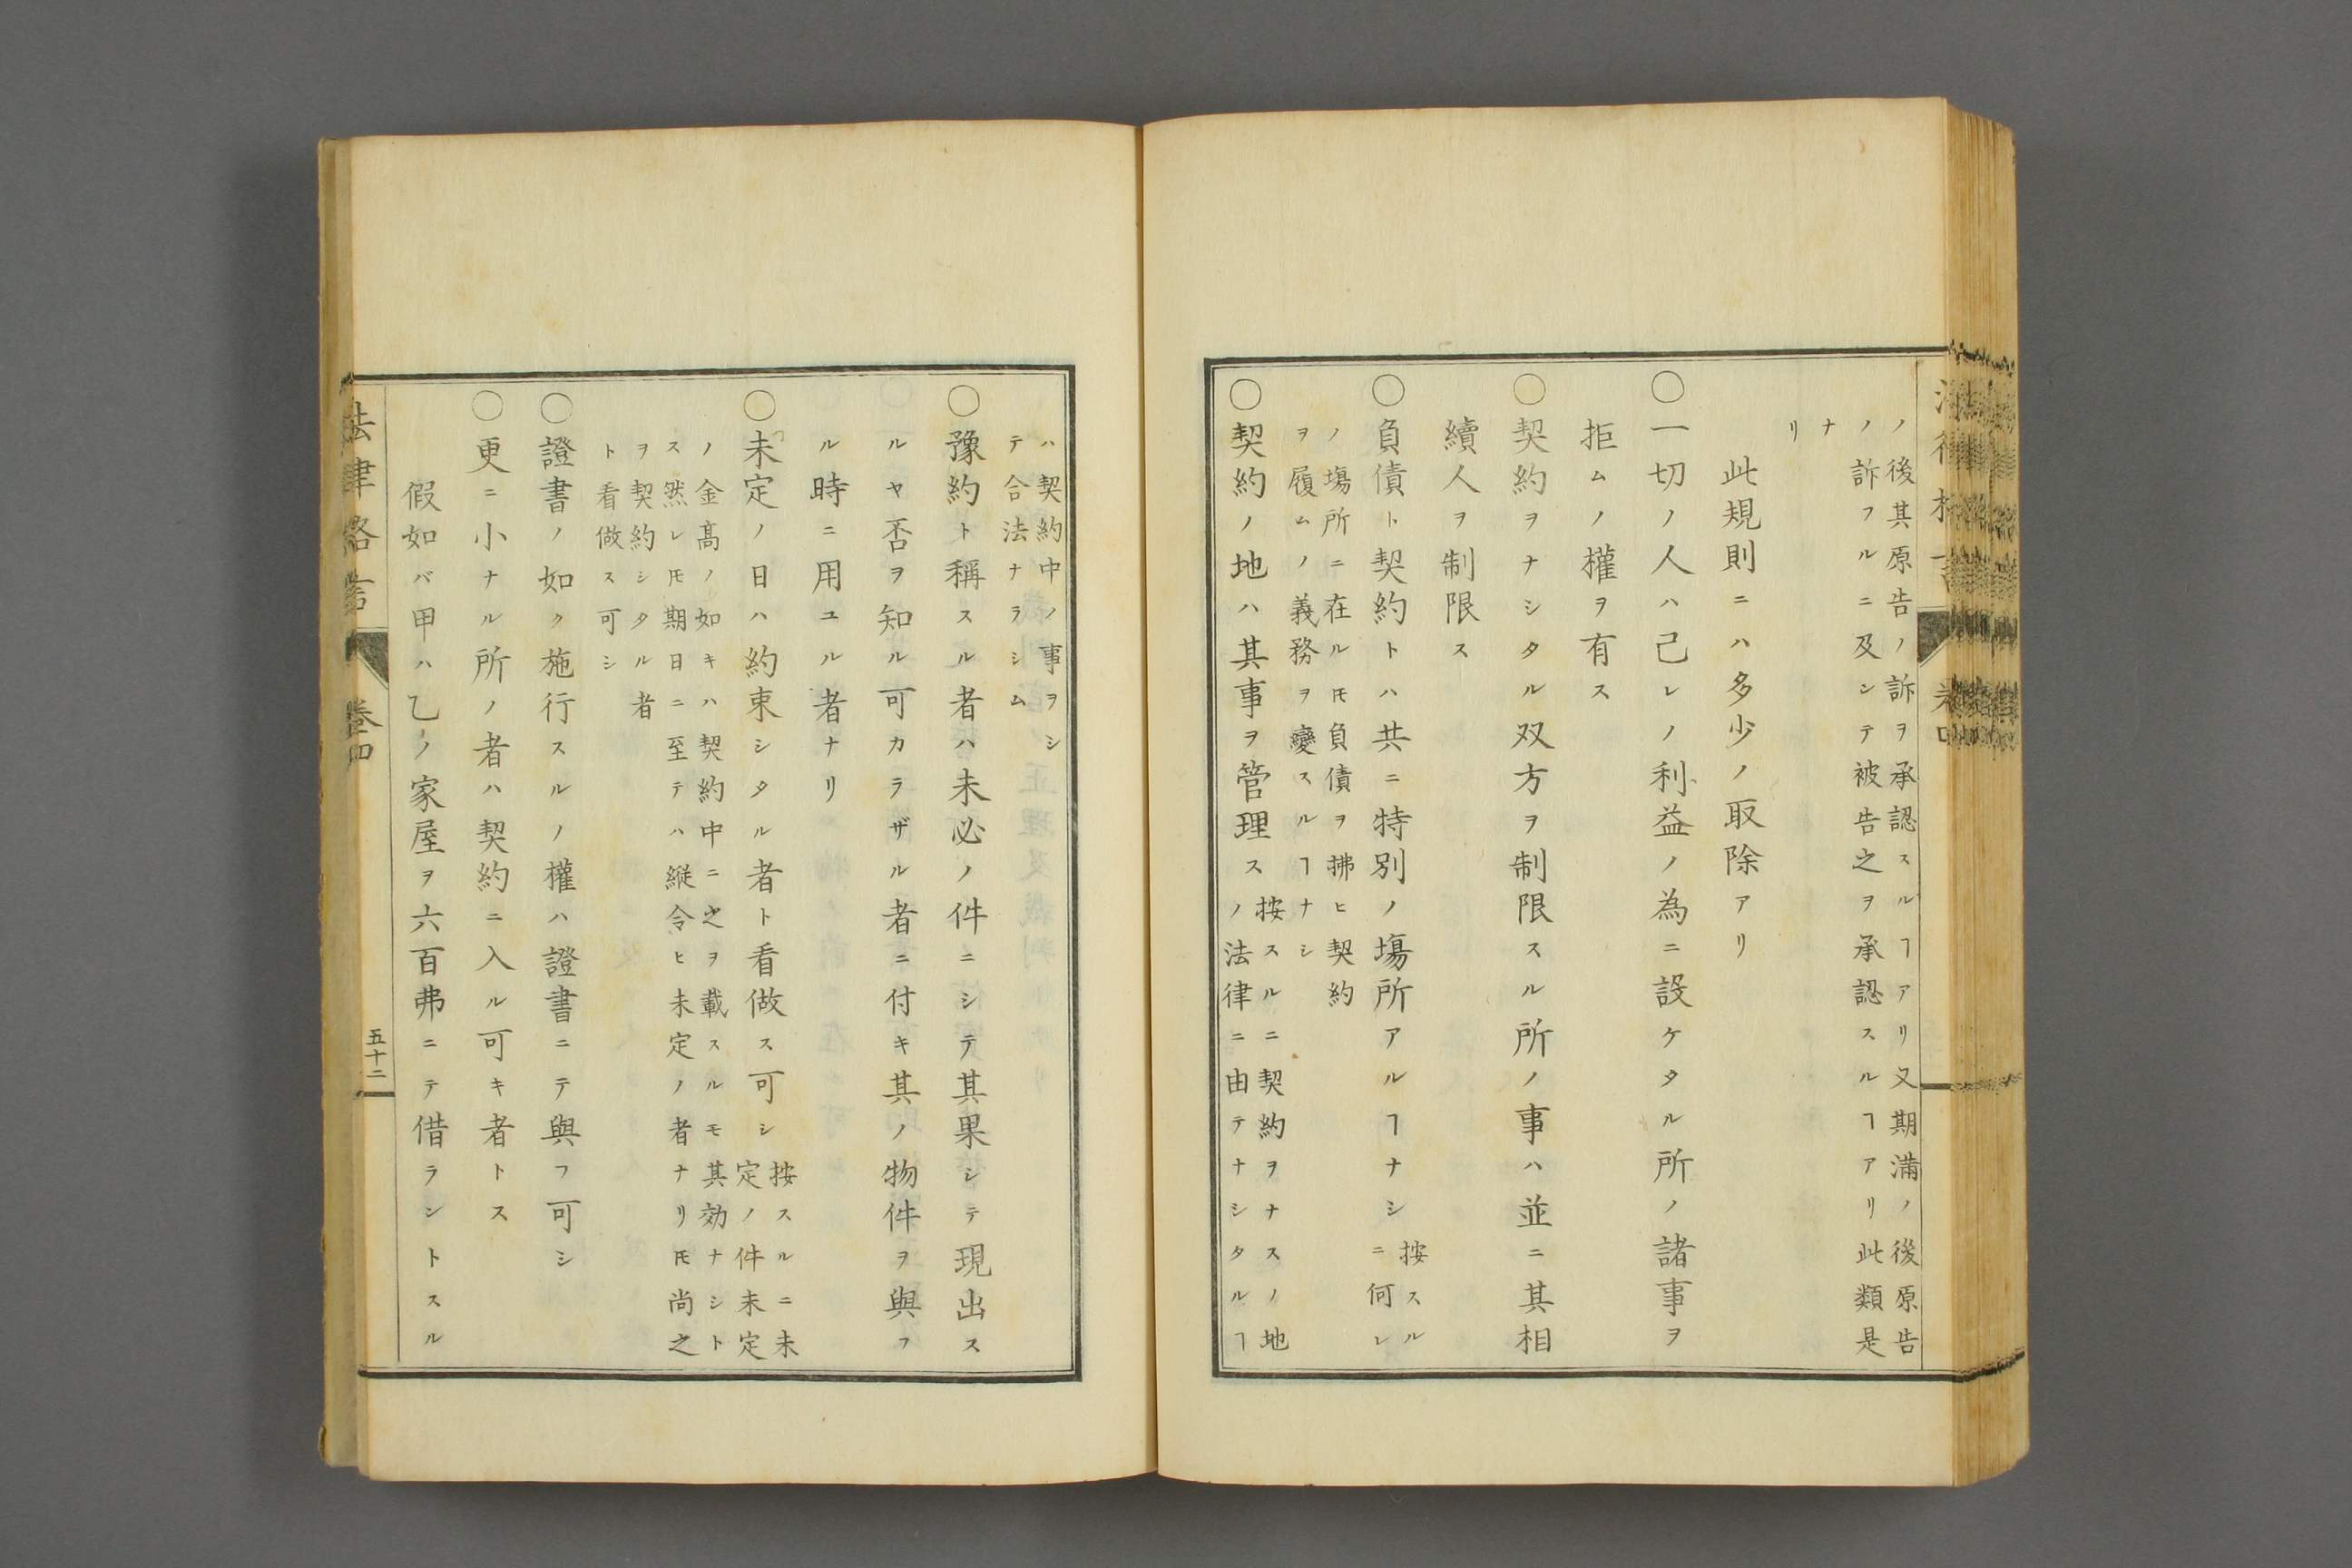 ノ後其原告ノ訴ヲ承認スルヿアリ又期滿ノ後原告
ノ訴フルニ及ンテ被告之ヲ承認スルヿアリ此類是
ナ
リ
此規則ニハ多少ノ取除アリ
○一切ノ人ハ己レノ利益ノ為ニ設ケタル所ノ諸事ヲ
拒ムノ權ヲ有ス
○契約ヲナシタル双方ヲ制限スル所ノ事ハ並ニ其相
續人ヲ制限ス
○負債ト契約トハ共ニ特別ノ塲所アルヿナシ
按スル
ニ何レ
ノ塲所ニ在ルモ負債ヲ拂ヒ契約
ヲ履ムノ義務ヲ變スルヿナシ
○契約ノ地ハ其事ヲ管理ス
按スルニ契約ヲナスノ地
ノ法律ニ由テナシタルヿ
ハ契約中ノ事ヲシ
テ合法ナラシム
○豫約ト稱スル者ハ未必ノ件ニシテ其果シテ現出ス
ルヤ否ヲ知ル可カラザル者ニ付キ其ノ物件ヲ與フ
ル時ニ用ユル者ナリ
○未定ノ日ハ約束シタル者ト看做ス可シ
按スルニ未
定ノ件未定
ノ金髙ノ如キハ契約中ニ之ヲ載スルモ其効ナシト
ス然レ𪜈期日ニ至テハ縦令ヒ未定ノ者ナリ𪜈尚之
ヲ契約シタル者
ト看做ス可シ
○證書ノ如ク施行スルノ權ハ證書ニテ與フ可シ
○更ニ小ナル所ノ者ハ契約ニ入ル可キ者トス
假如バ甲ハ乙ノ家屋ヲ六百弗ニテ借ラントスル
法律格言 卷四 五十二